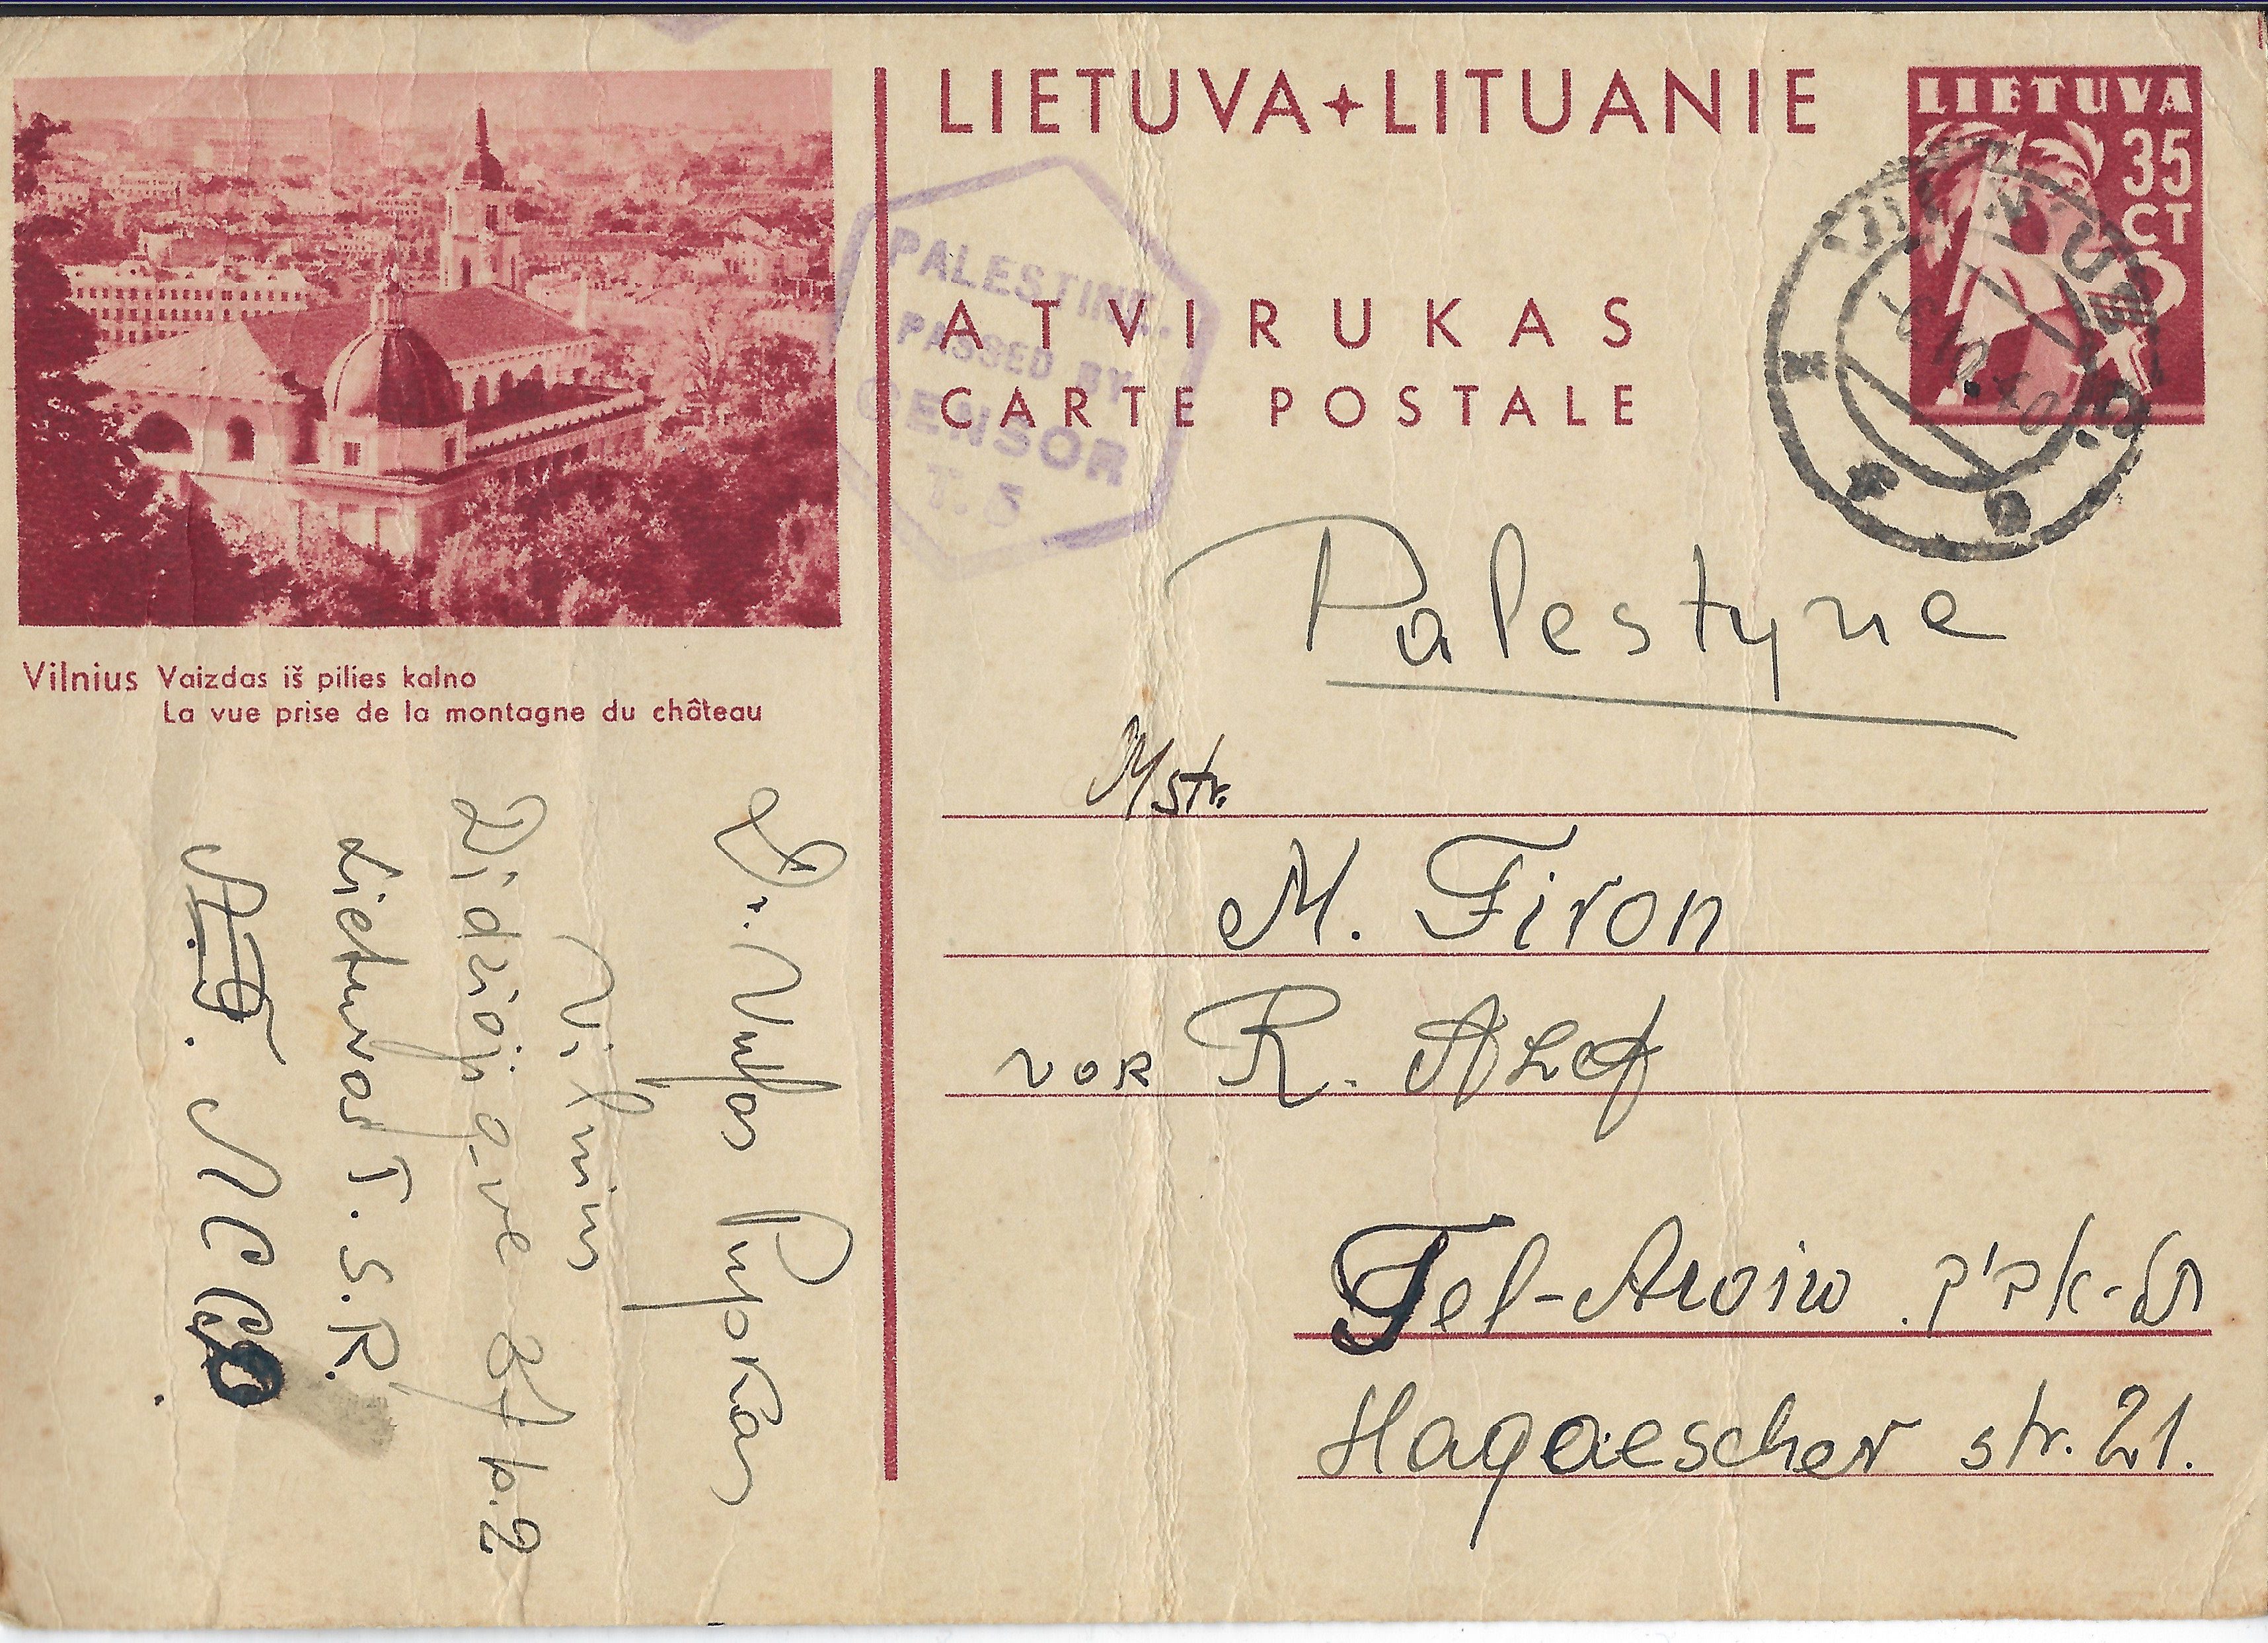 LIETUVA + LITUANIE
LIETUVA
35
CT
VILNIUS
ATVIRUKAS
CARTE POSTALE
PALESTINE.
PASSED BY
CENSOR
T. 5
Vilnius Vaizdas iš pilies kalno
La vue prise de la montagne du château
Palestyne
Mstr.
M. Firon
R. Alef
Tel-Awiw תל-אביב
Hagaescher str. 21.
Dr.
Vilnius
Didžioji g-vė b. 2
Lietuvos T.S.R.